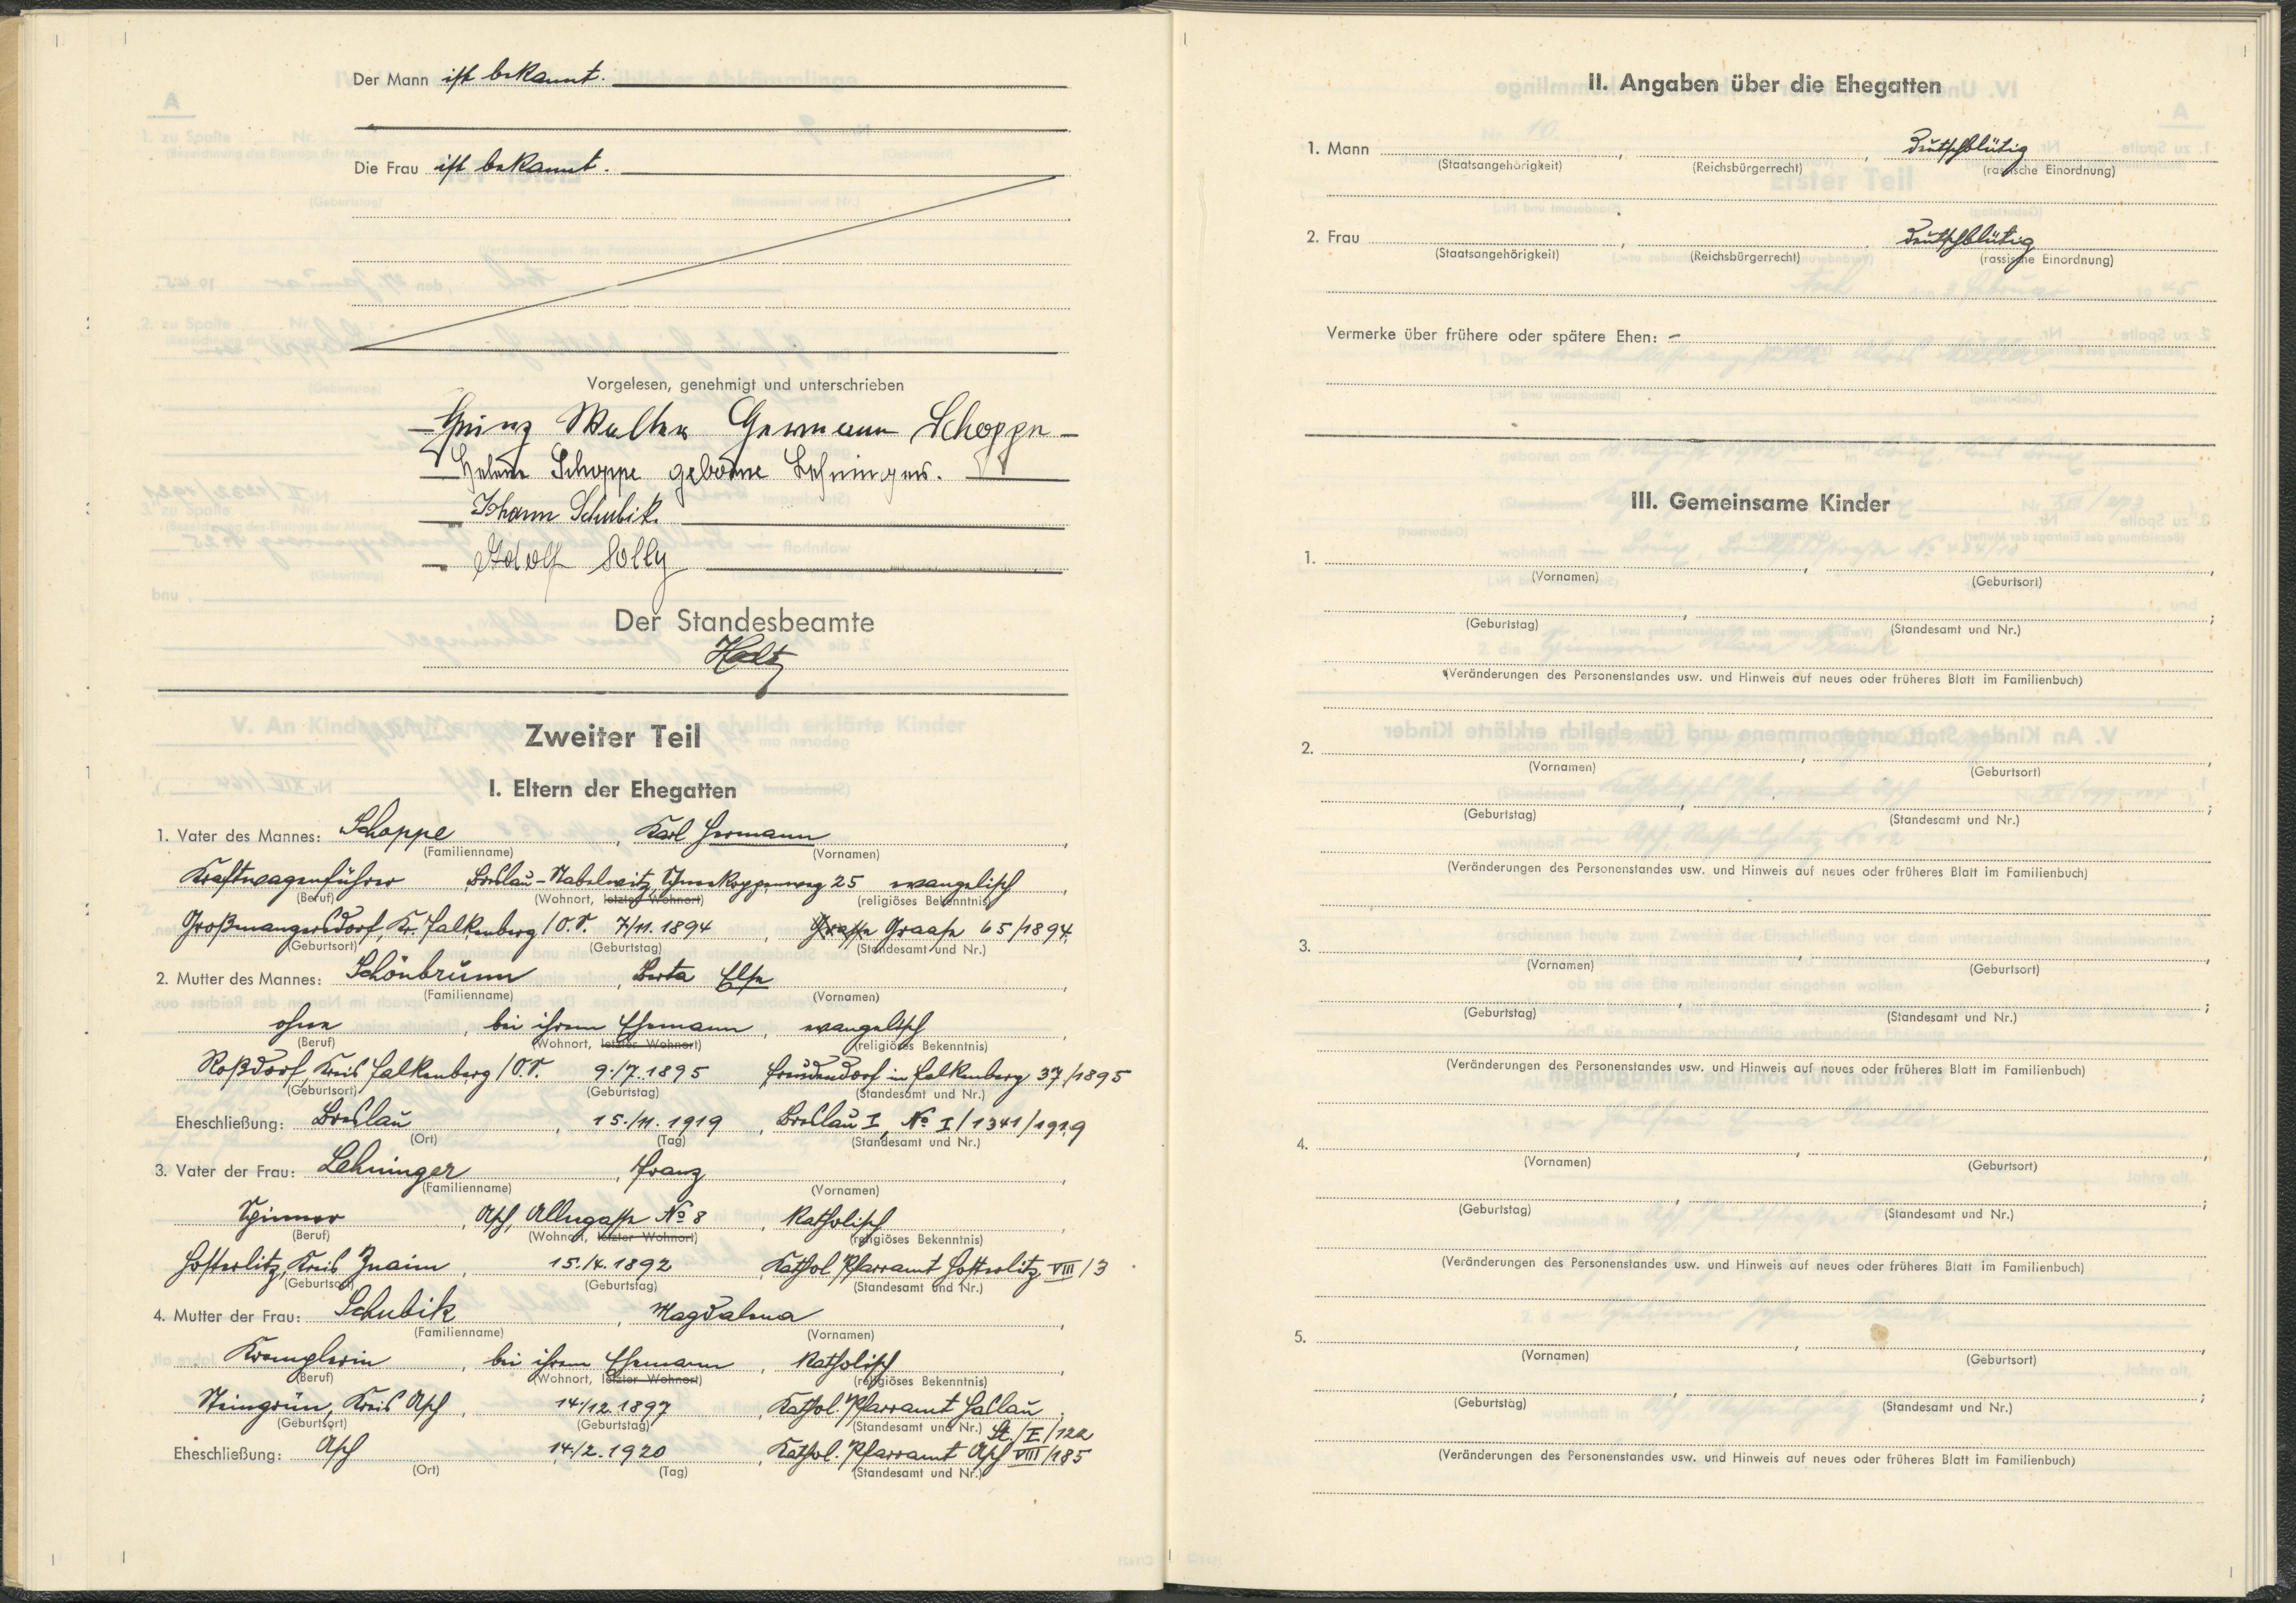 Der Mann ist bekannt.
Die Frau ist bekannt.
Vorgelesen, genehmigt und unterschrieben
Heinz Walter Hermann Schoppe
Helene Schoppe geborene Lehninger.
Johann Schubik
Adolf Solly
Der Standesbeamte
Zweiter Teil
I. Eltern der Ehegatten
1. Vater des Mannes: Schoppe, Karl Hermann
(Familienname) (Vornamen)
Kraftwagenführer Breslau-Stabelwitz, Schneekoppenweg 25 evangelisch
(Beruf) (Wohnort, letzter Wohnort) (religiöses Bekenntnis)
Großmangersdorf, Kr. Falkenberg/O.S. 7/11.1894, Graase 65/1894
(Geburtsort) (Geburtstag) (Standesamt und Nr.)
2. Mutter des Mannes: Schönbrunn, Berta Else
(Familienname) (Vornamen)
ohne, bei ihrem Ehemann, evangelisch
(Beruf) (Wohnort, letzter Wohnort) (religiöses Bekenntnis)
Roßdorf, Kreis Falkenberg/O.S. 9./7.1895 Freudendorf in Falkenberg 37/1895
(Geburtsort) (Geburtstag) (Standesamt und Nr.)
Eheschließung: Breslau, 15./11.1919, Breslau I, No I/1341/1919
(Ort) (Tag) (Standesamt und Nr.)
3. Vater der Frau: Lehninger, Franz
(Familienname) (Vornamen)
Spinner, Asch, No 8, katholisch
(Beruf) (Wohnort, letzter Wohnort) (religiöses Bekenntnis)
Hosterlitz, Kreis Znaim, 15./4.1892, Kathol. Pfarramt Hosterlitz VIII/3
(Geburtsort) (Geburtstag) (Standesamt und Nr.)
4. Mutter der Frau: Schubik, Magdalena
(Familienname) (Vornamen)
Kremplerin, bei ihrem Ehemann, katholisch
(Beruf) (Wohnort, letzter Wohnort) (religiöses Bekenntnis)
Steingrün, Kreis Asch, 14./12.1897, Kathol. Pfarramt Haslau
(Geburtsort) (Geburtstag) (Standesamt und Nr.) St./E/122
Eheschließung: Asch 14./2.1920, Kathol. Pfarramt Asch VIII/185
(Ort) (Tag) (Standesamt und Nr.)
II. Angaben über die Ehegatten
1. Mann, , deutschblütig
(Staatsangehörigkeit) (Reichsbürgerrecht) (rassische Einordnung)
2. Frau, deutschblütig
(Staatsangehörigkeit) (Reichsbürgerrecht) (rassische Einordnung)
Vermerke über frühere oder spätere Ehen: –
III. Gemeinsame Kinder
1.
(Vornamen) (Geburtsort)
(Geburtstag) (Standesamt und Nr.)
(Veränderungen des Personenstandes usw. und Hinweis auf neues oder früheres Blatt im Familienbuch)
2.
(Vornamen) (Geburtsort)
(Geburtstag) (Standesamt und Nr.)
(Veränderungen des Personenstandes usw. und Hinweis auf neues oder früheres Blatt im Familienbuch)
3.
(Vornamen) (Geburtsort)
(Geburtstag) (Standesamt und Nr.)
(Veränderungen des Personenstandes usw. und Hinweis auf neues oder früheres Blatt im Familienbuch)
4.
(Vornamen) (Geburtsort)
(Geburtstag) (Standesamt und Nr.)
(Veränderungen des Personenstandes usw. und Hinweis auf neues oder früheres Blatt im Familienbuch)
5.
(Vornamen) (Geburtsort)
(Geburtstag) (Standesamt und Nr.)
(Veränderungen des Personenstandes usw. und Hinweis auf neues oder früheres Blatt im Familienbuch)